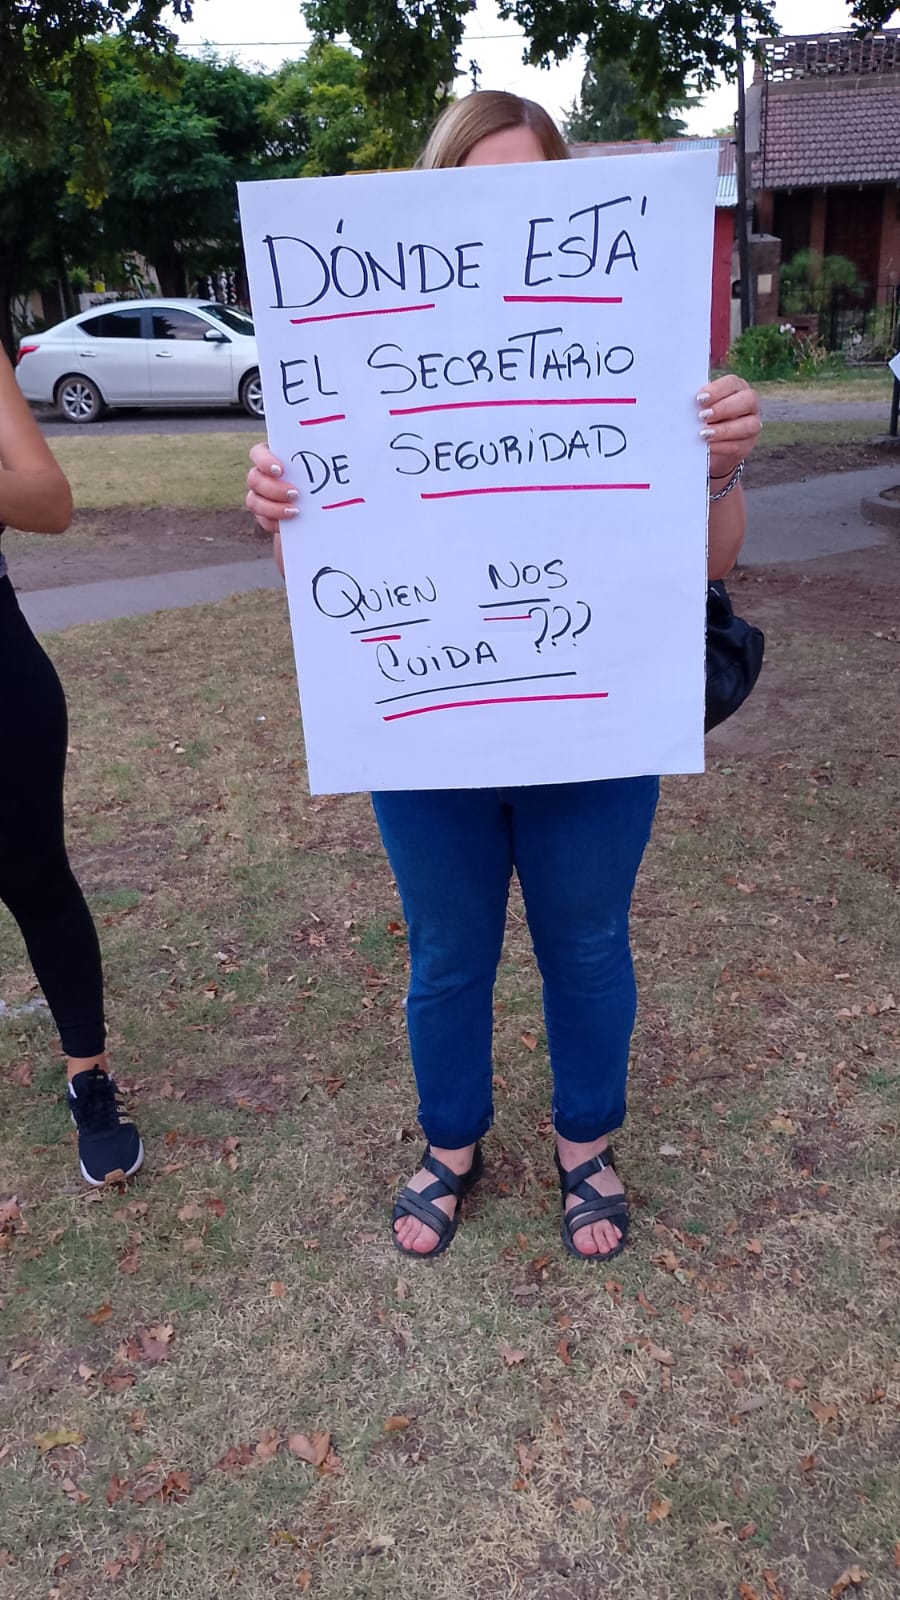 DÓNDE ESTÁ
EL SECRETARIO
DE SEGURIDAD
QUIEN NOS
CUIDA ???